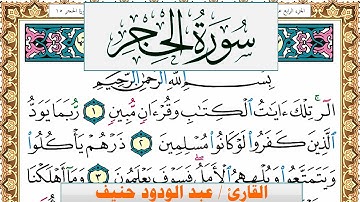 سورة الحجر
بِسْمِ اللَّهِ الرَّحْمَٰنِ الرَّحِيمِ
الٓر ۚ تِلْكَ ءَايَٰتُ الْكِتَٰبِ وَقُرْءَانٍ مُّبِينٍ ١ رُّبَمَا يَوَدُّ
الَّذِينَ كَفَرُوا لَوْ كَانُوا مُسْلِمِينَ ٢ ذَرْهُمْ يَأْكُلُوا
وَيَتَمَتَّعُوا وَيُلْهِهِمُ الْأَمَلُ ۖ فَسَوْفَ يَعْلَمُونَ ٣ وَمَا أَهْلَكْنَا
القارئ / عبد الودود حنيف